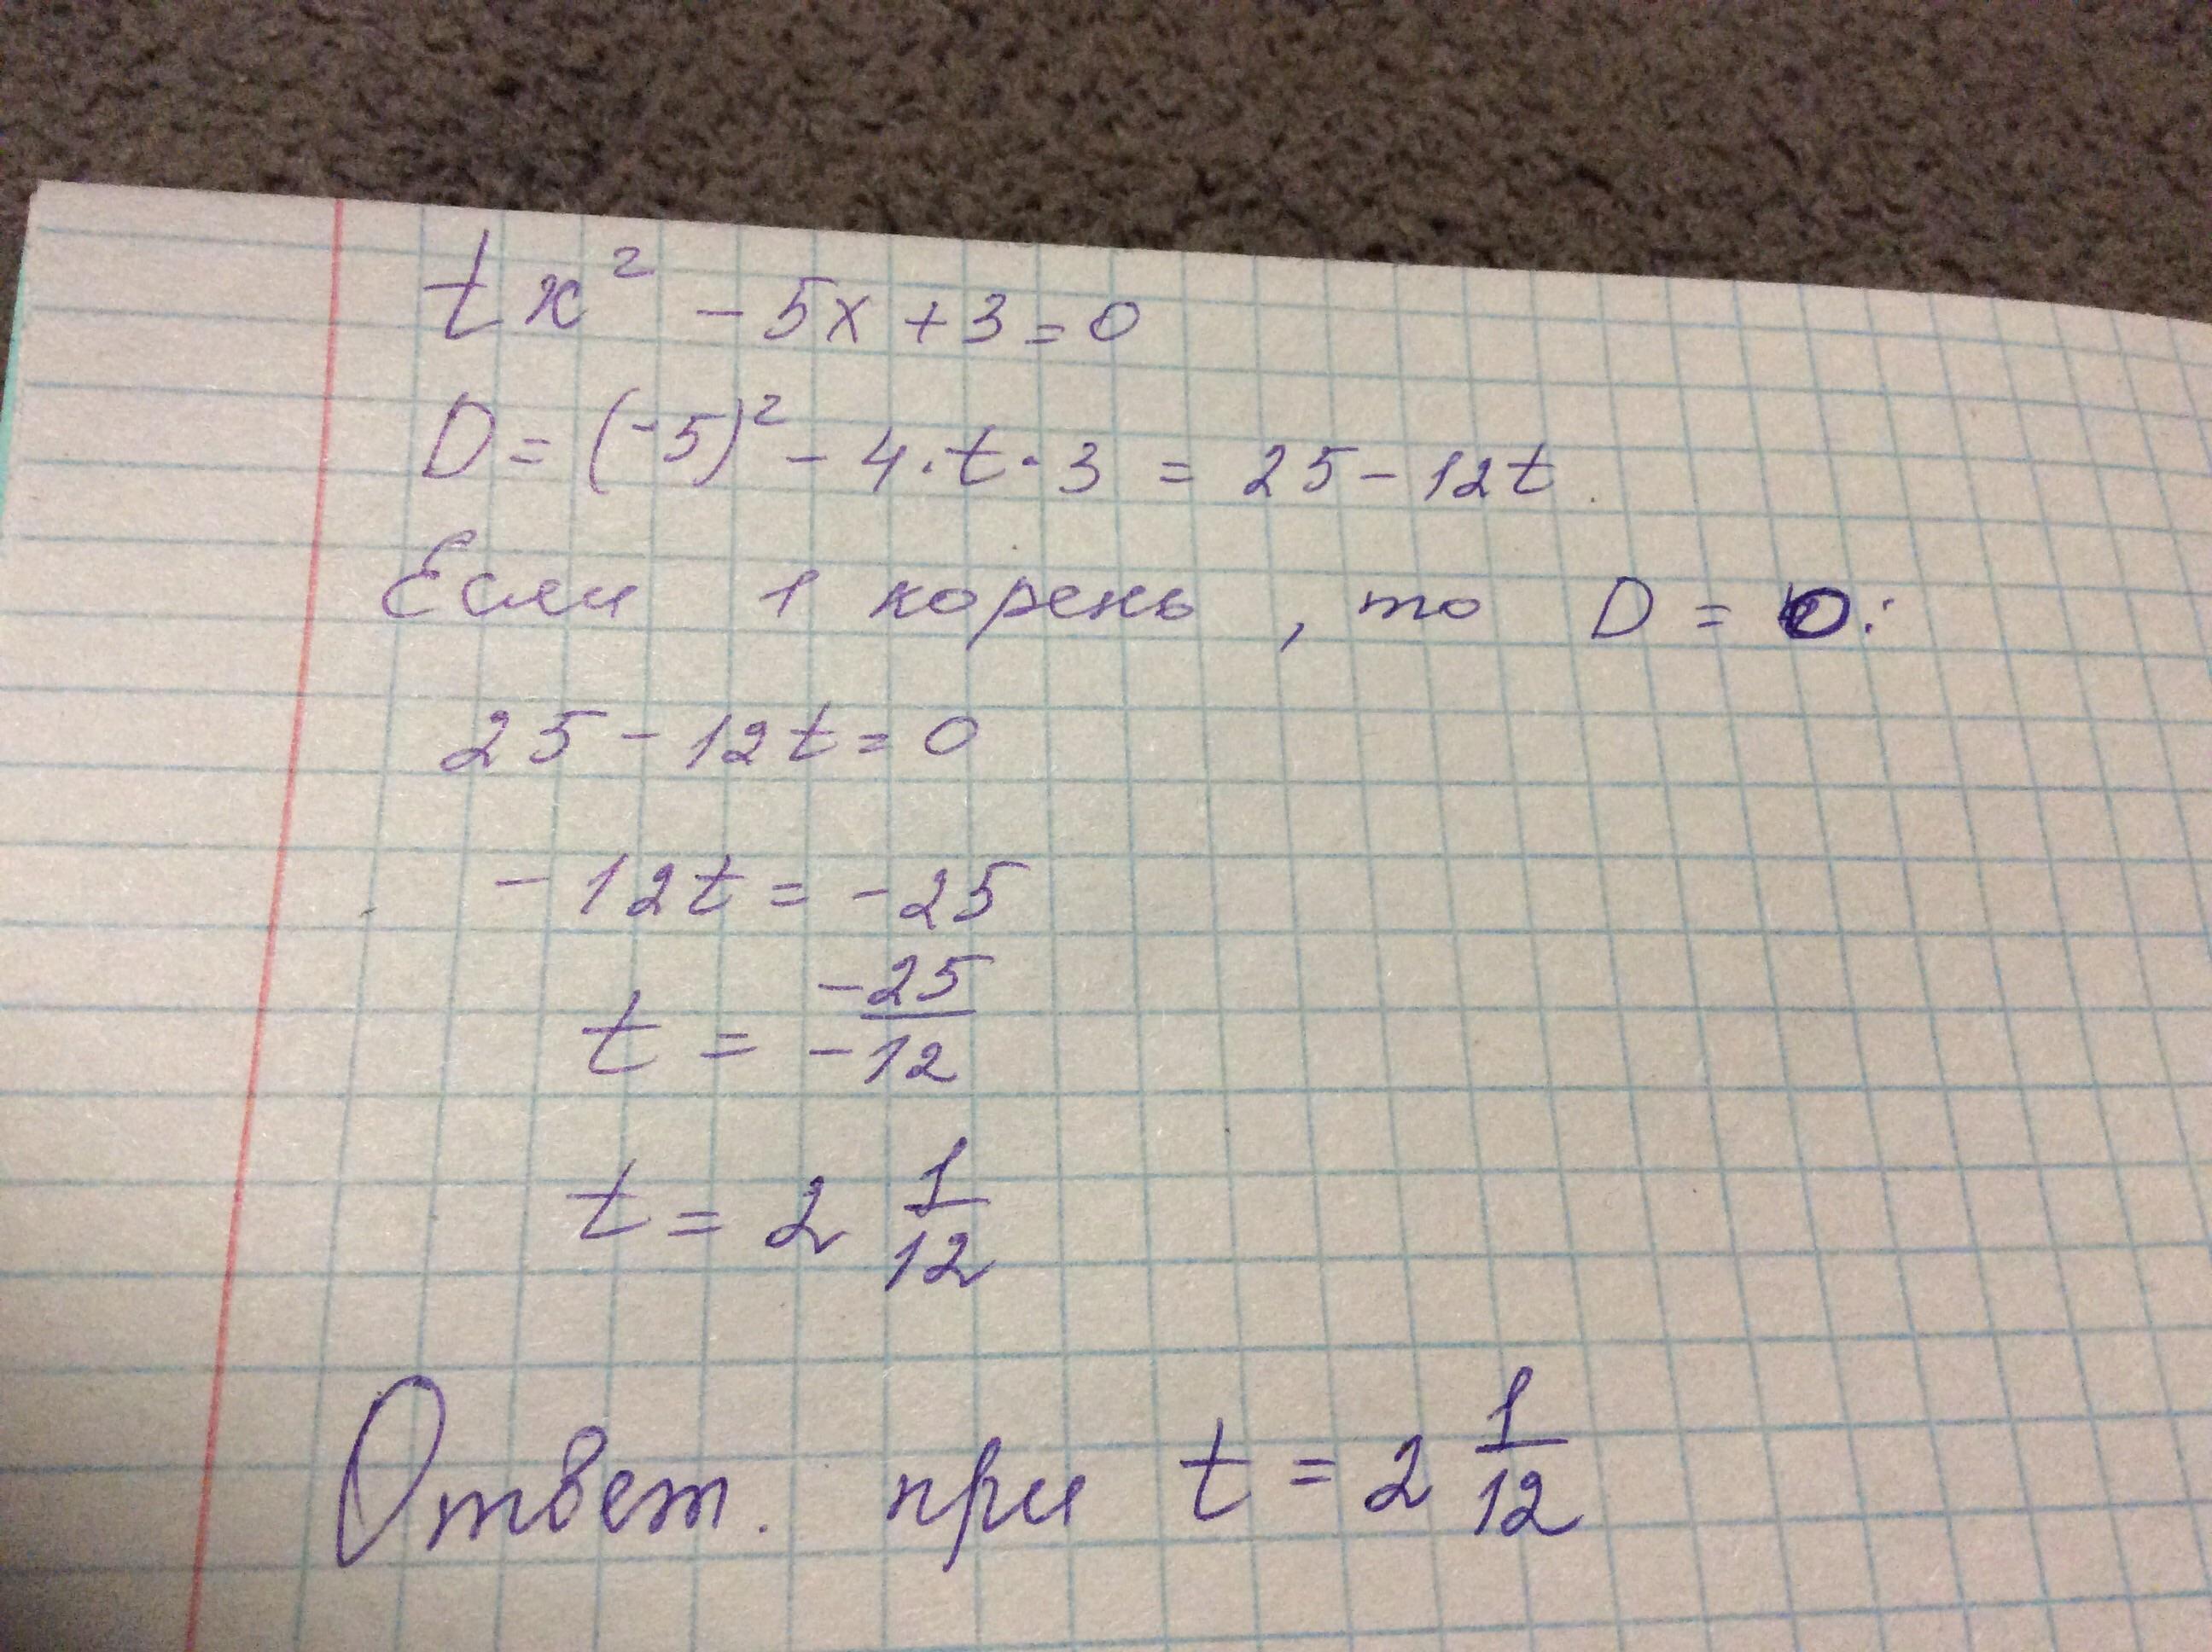 tx² - 5x + 3 = 0
D = (-5)² - 4·t·3 = 25 - 12t.
Если 1 корень, то D = 0:
25 - 12t = 0
-12t = -25
t = -25/-12
t = 2 1/12
Ответ. при t = 2 1/12